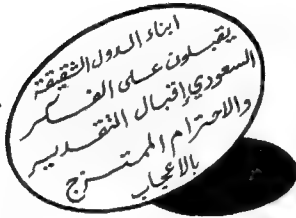 ابناء الدول الشقيقة
يقبلون على الفكر
السعودي إقبال التقدير
والاحترام الممتزج
بالاعجاب